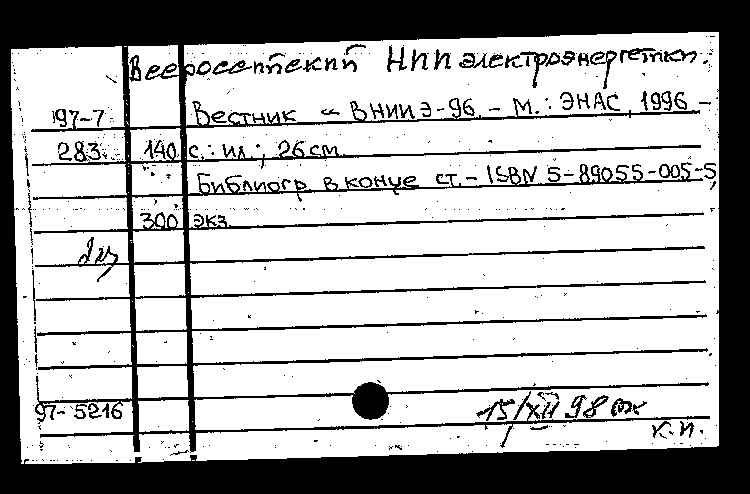 Всероссийский НИИ электроэнергетики.
97-7 Вестник ВНИИЭ-96. - М.: ЭНАС, 1996 -
283. 140 с.: ил.; 26 см.
Библиогр. в конце ст. - ISBN 5-89055-005-5,
300 экз.
97-5216
15/XII 98
К.И.